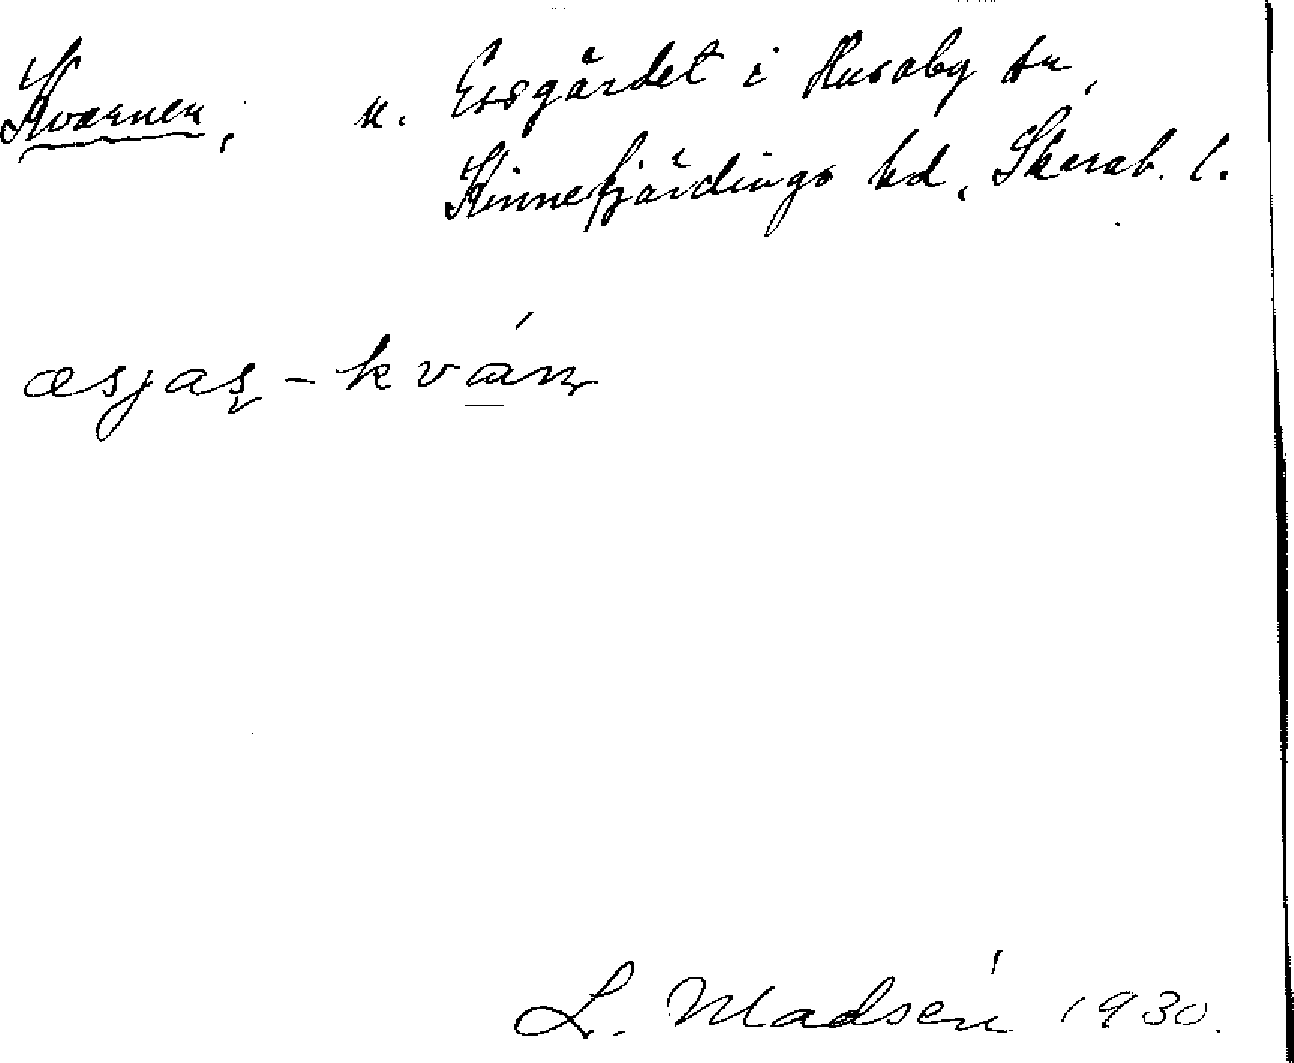 Kvarnen, u. Essgärdet i Husaby sn,
Kinnefjärdings hd, Skarab. l.
æsjas - kván
L. Madsén 1930.